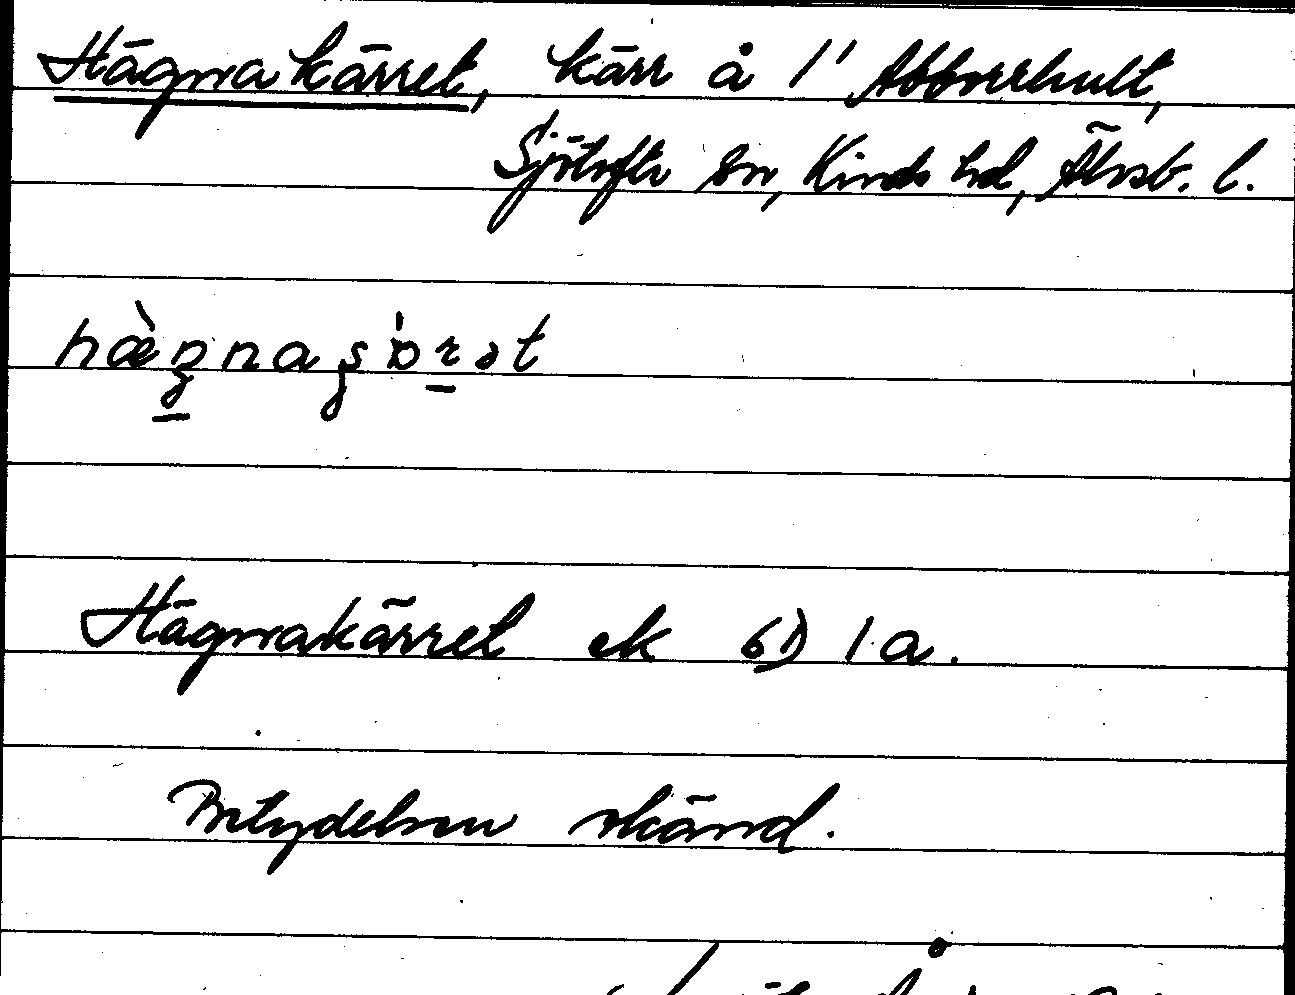 Hägnakärret, kärr å 1' Abborrhult,
Sjötofta sn, Kinds hd, Älvsb. l.
hæ̀ŋnaʂɒ̀rət
Hägnakärret ek 6D 1a.
Betydelsen okänd.